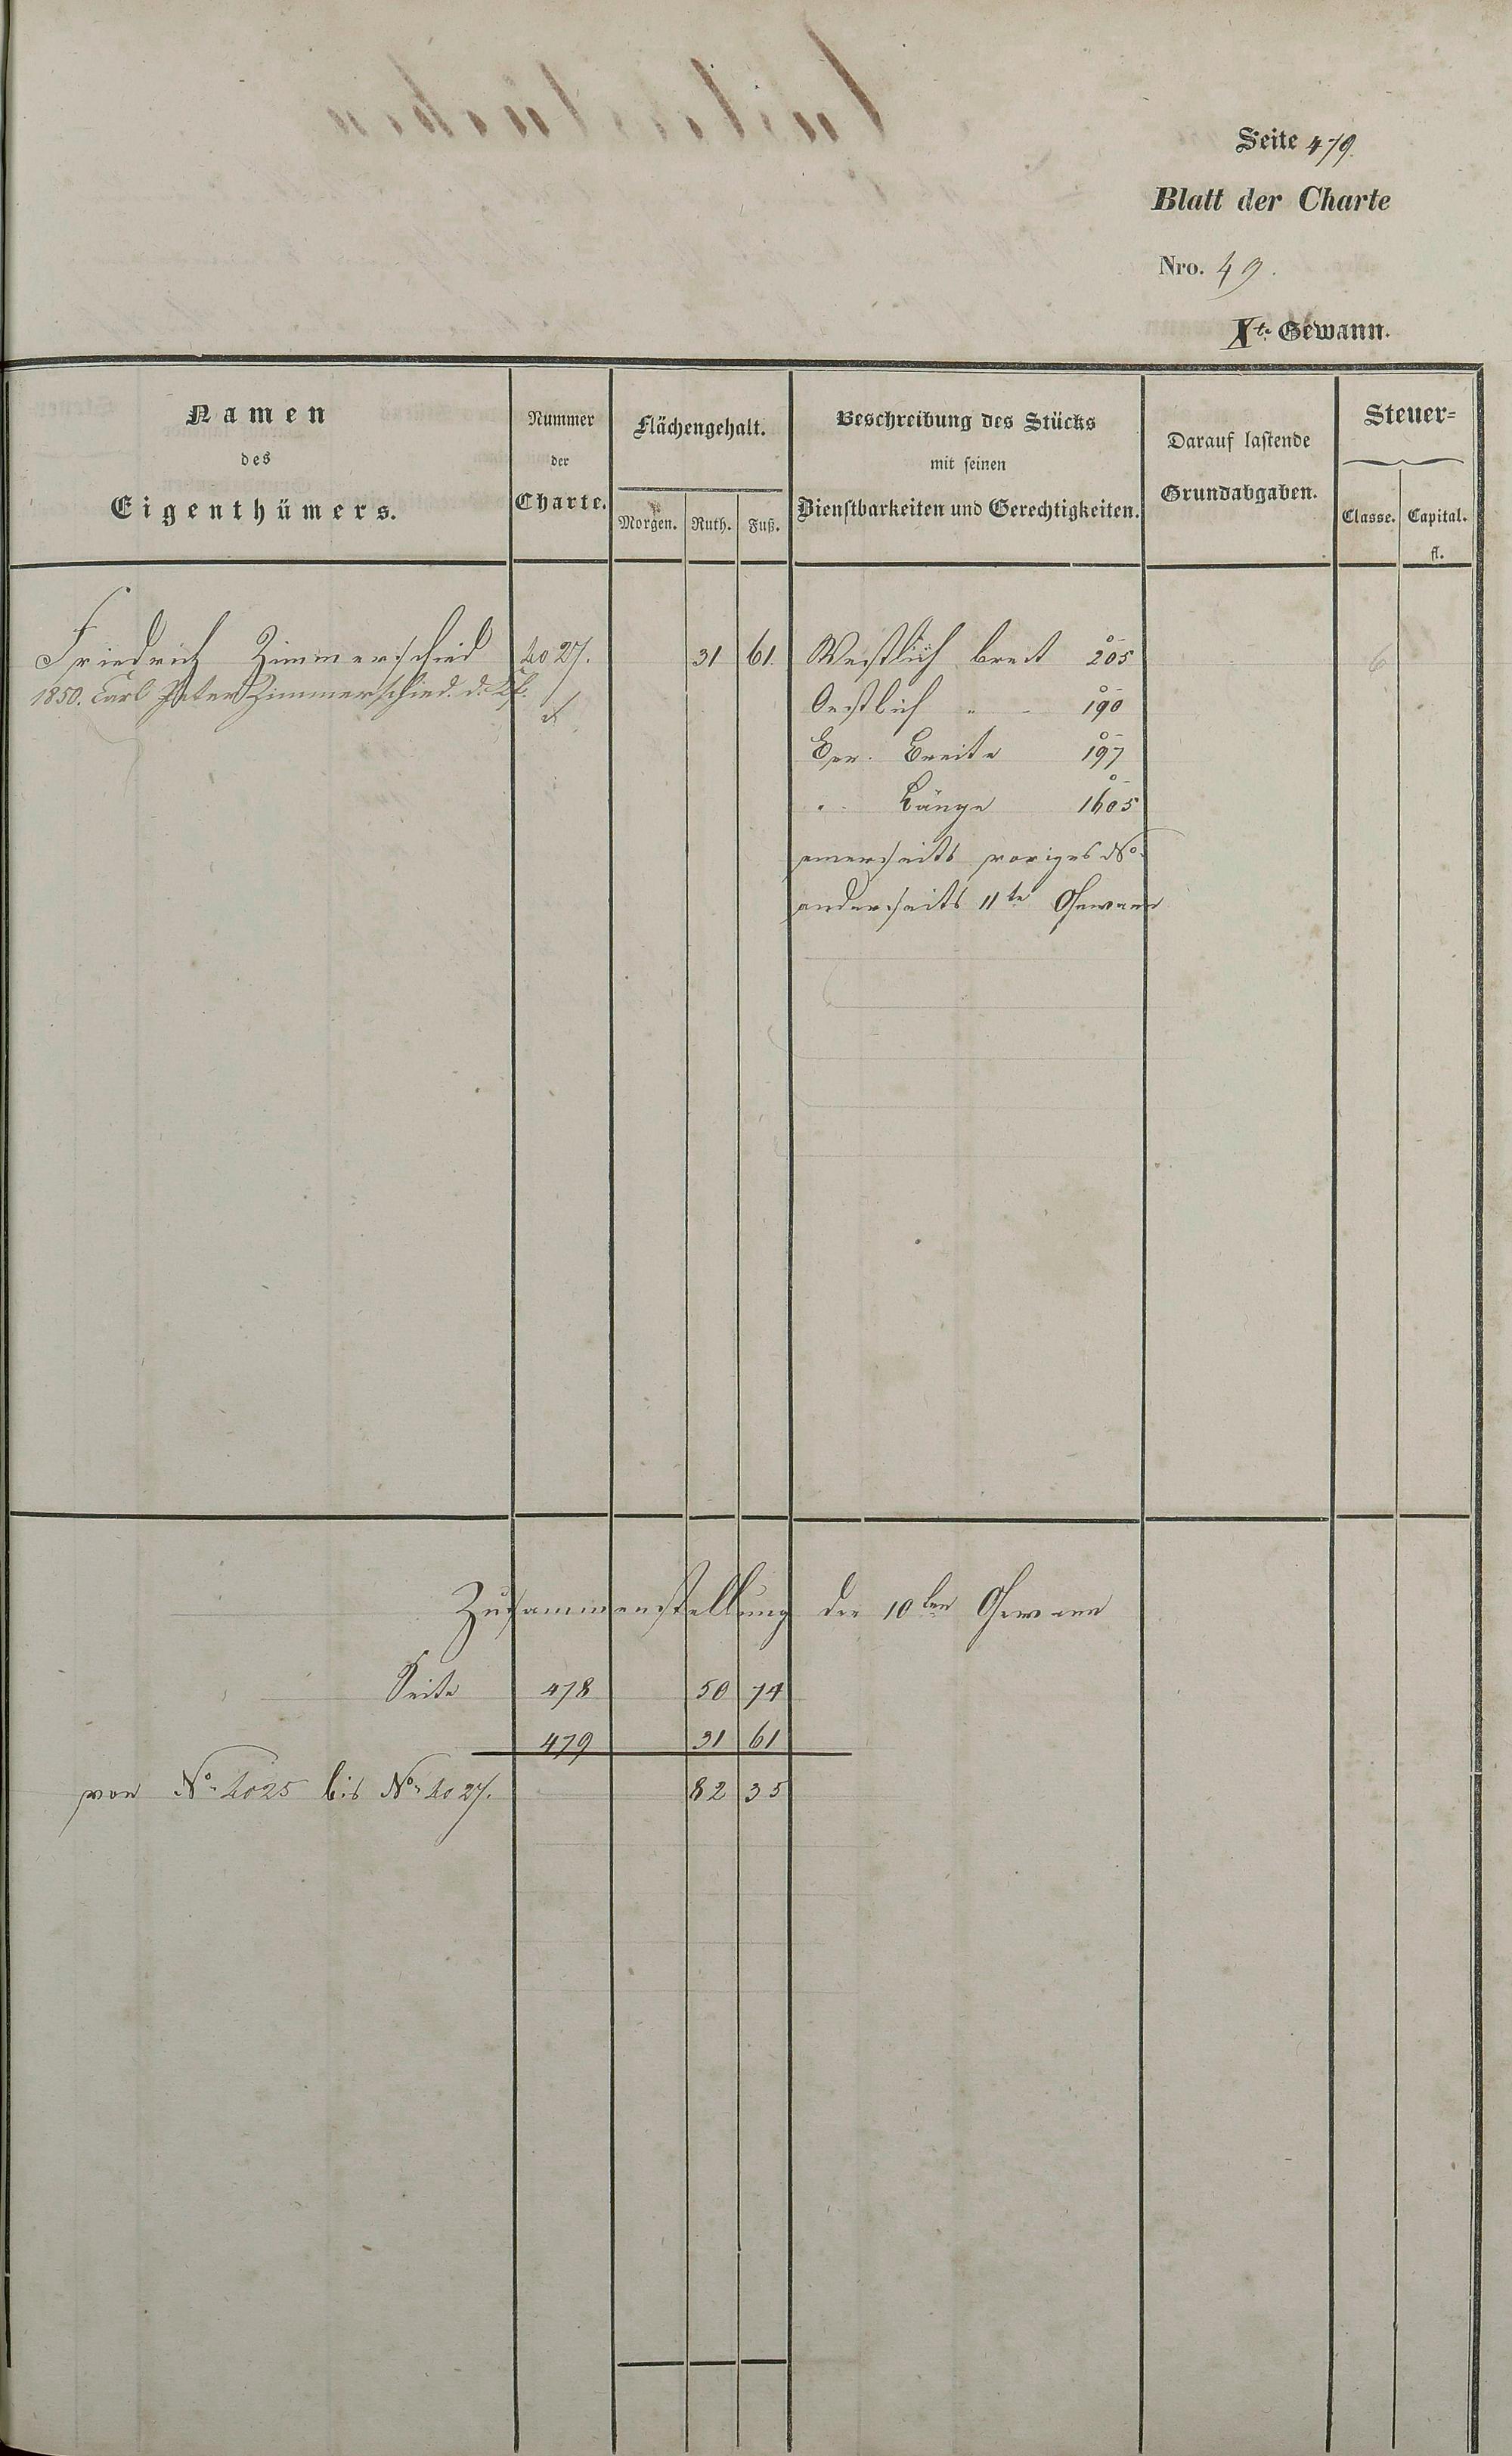 Seite 479.
Blatt der Charte
Nro. 49.
Xte Gewann.
Namen des Eigenthümers.
Nummer der Charte.
Flächengehalt.
Morgen. Ruth. Fuß.
Beschreibung des Stücks mit seinen Dienstbarkeiten und Gerechtigkeiten.
Darauf lastende Grundabgaben.
Steuer=
Classe. Capital.
fl.
Friedrich Zimmerschied 4027. 31 61. Westlich breit 205 6
1850. Carl Peter Zimmerschied. d.
Oestlich " - 190
Ger. Breite 197
" Länge 1605
einerseits voriges No.
anderseits 11te Gewann
Zusammenstellung der 10ten Gewann
Seite 478 50 74
479 31 61
von No. 4025 bis No. 4027. 82 35